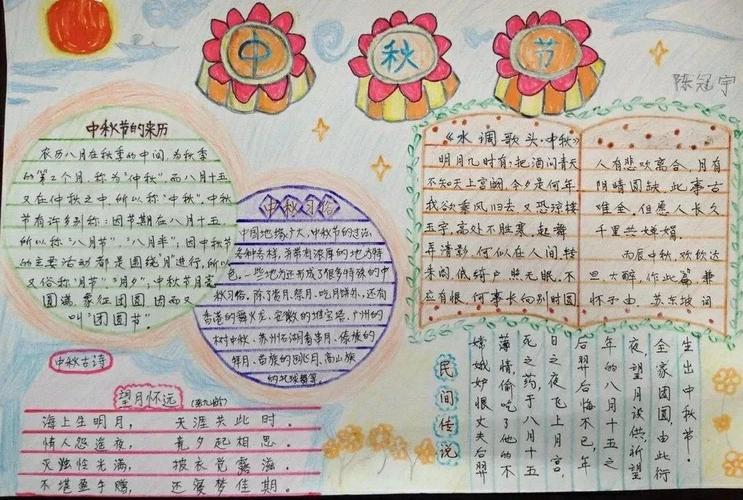 中秋节
陈冠宇
中秋节的来历
农历八月在秋季的中间，为秋季
的第二个月，称为"仲秋"，而八月十五
又在仲秋之中，所以称"中秋"，中秋
节有许多别称：因节期在八月十五，
所以称"八月节"，"八月半"；因中秋节
的主要活动都是围绕"月"进行，所以
又俗称"月节"、"月夕"；中秋节月亮
圆满，象征团圆，因而又
叫"团圆节"。
中秋习俗
中国地缘广大，中秋节的过法，
各种各样，并带有浓厚的地方特
色，一些地方还形成了很多特殊的中
秋习俗。除了赏月、祭月、吃月饼外，还有
香港的舞火龙、安徽的堆宝塔、广州的
树中秋、苏州石湖看串月、傣族的
拜月、苗族的跳月、高山族
的托球舞等。
《水调歌头·中秋》
明月几时有：把酒问青天
不知天上宫阙，今夕是何年
我欲乘风归去，又恐琼楼
玉宇，高处不胜寒，起舞
弄清影，何似在人间，转
朱阁，低绮户，照无眠。不
应有恨，何事长向别时圆
人有悲欢离合，月有
阴晴圆缺，此事古
难全，但愿人长久
千里共婵娟。
丙辰中秋，欢饮达
旦，大醉，作此篇，兼
怀子由，苏东坡 词
中秋古诗
望月怀远 (张九龄)
海上生明月， 天涯共此时。
情人怨遥夜， 竟夕起相思。
灭烛怜光满， 披衣觉露滋。
不堪盈手赠， 还寝梦佳期。
民间传说
嫦娥妒恨丈夫后羿
薄情，偷吃了他的不
死之药，于八月十五
日之夜飞上月宫，
后羿后悔不已，年
年的八月十五之
夜，望月设供，祈望
全家团圆，由此衍
生出中秋节。